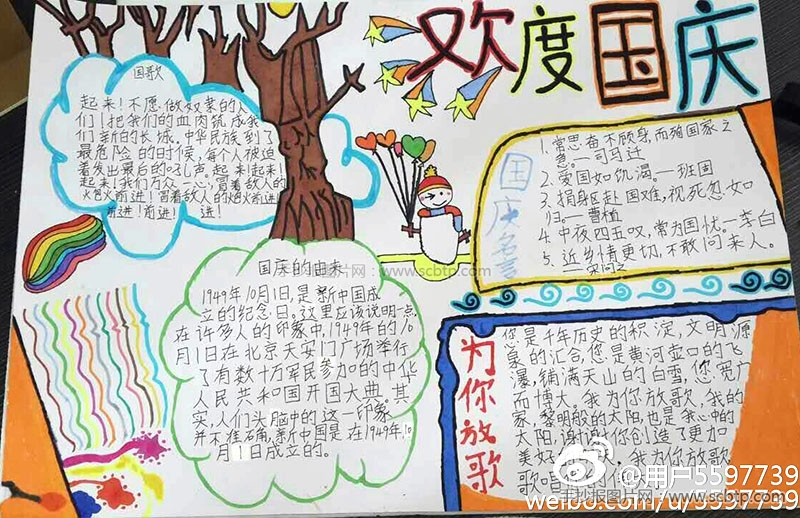 欢度国庆
国歌
起来！不愿做奴隶的人
们！把我们的血肉筑成我
们新的长城。中华民族到了
最危险的时候，每个人被迫
着发出最后的吼声。起来！起来！
起来！我们万众一心，冒着敌人的
炮火前进！冒着敌人的炮火前进！
前进！前进！进！
国庆名言
1.常思奋不顾身，而殉国家之
急。—司马迁
2.爱国如饥渴。—班固
3.捐躯赴国难，视死忽如
归。—曹植
4.中夜四五叹，常为国忧。—李白
5.近乡情更切，不敢问来人。
—宋问之
国庆的由来
1949年10月1日，是新中国成
立的纪念日。这里应该说明一点，
在许多人的印象中，1949年的10
月1日在北京天安门广场举行
了有数十万军民参加的中华
人民共和国开国大典。其
实，人们头脑中的这一印象
并不准确，新中国是在1949年10
月1日成立的。
为你放歌
您是千年历史的积淀，文明源
泉的汇合，您是黄河壶口的飞
瀑，铺满天山的白雪，您宽广
而博大。我为你放歌，我的国
家，黎明般的太阳，也是我心中的
太阳，谢谢你创造了更加
美好
我为你放歌
歌唱
手抄报图片网：www.scbtp.com
@用户5597739
weibo.com/u/5597739
手抄报图片网 - www.scbtp.com